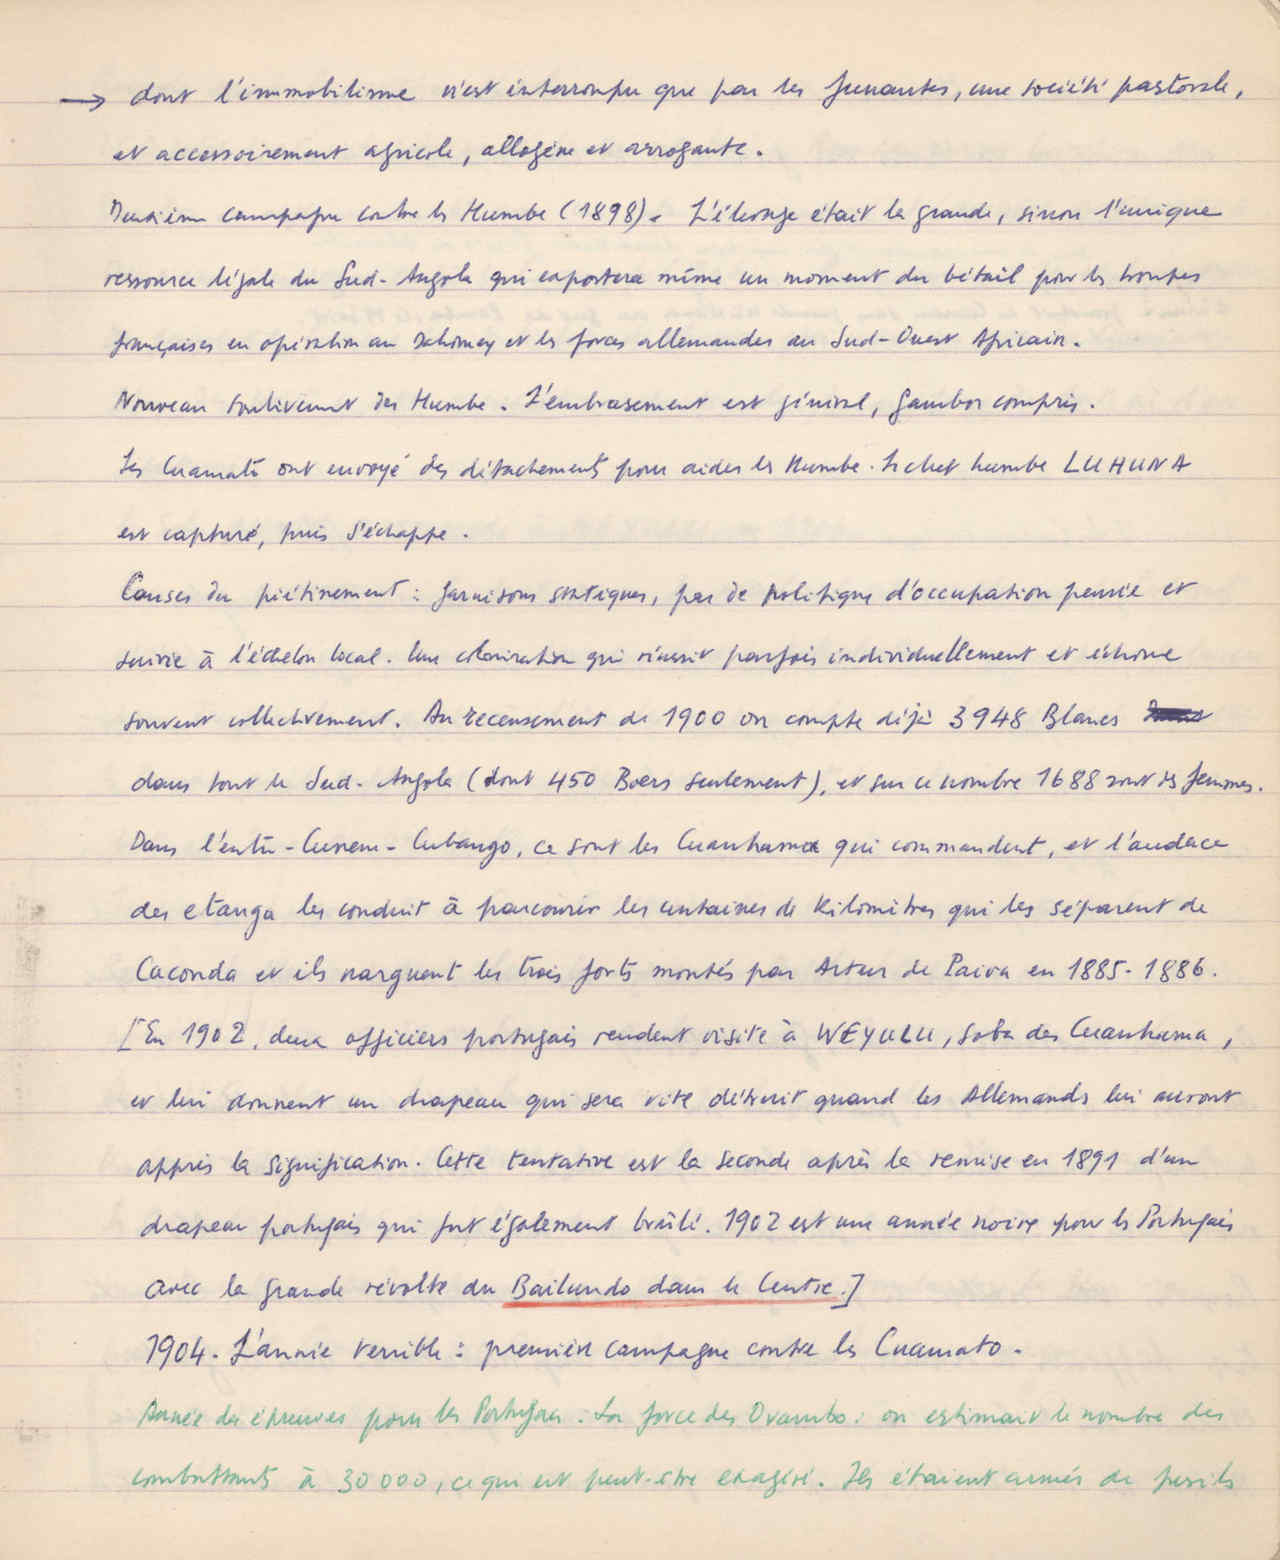 → dont l'immobilisme n'est interrompu que par les funantes, une société pastorale,
et accessoirement agricole, allogène et arrogante.
Deuxième campagne contre les Humbe (1898). L'élevage était la grande, sinon l'unique
ressource légale du Sud-Angola qui exportera même un moment du bétail pour les troupes
françaises en opération au Dahomey et les forces allemandes au Sud-Ouest Africain.
Nouveau soulèvement des Humbe. L'embrasement est général, Gambos compris.
Les Cuamato ont envoyé des détachements pour aider les Humbe. Le chef humbe LUHUNA
est capturé, puis s'échappe.
Causes du piétinement : garnisons statiques, pas de politique d'occupation pensée et
suivie à l'échelon local. Une colonisation qui réussit parfois individuellement et échoue
souvent collectivement. Au recensement de 1900 on compte déjà 3948 Blancs
dans tout le Sud-Angola (dont 450 Boers seulement), et sur ce nombre 1688 sont des femmes.
Dans l'entre-Cunene-Cubango, ce sont les Cuanhama qui commandent, et l'audace
des etanga les conduit à parcourir les centaines de kilomètres qui les séparent de
Caconda et ils narguent les trois forts montés par Artur de Paiva en 1885-1886.
[En 1902, deux officiers portugais rendent visite à WEYULU, soba des Cuanhama,
et lui donnent un drapeau qui sera vite détruit quand les Allemands lui auront
appris la signification. Cette tentative est la seconde après la remise en 1891 d'un
drapeau portugais qui fut également brûlé. 1902 est une année noire pour les Portugais
avec la grande révolte du Bailundo dans le Centre.]
1904. L'année terrible : première campagne contre les Cuamato.
Année des épreuves pour les Portugais. La force des Ovambo : on estimait le nombre des
combattants à 30 000, ce qui est peut-être exagéré. Ils étaient armés de fusils